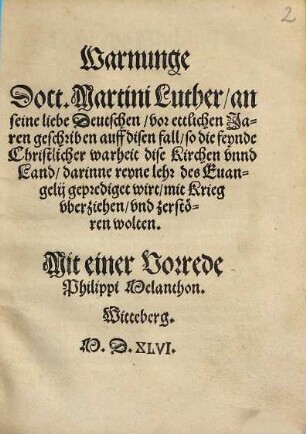 2
Warnunge
Doct. Martini Luther/an
seine liebe Deutschen/vor ettlichen Ja-
ren geschriben auff disen fall/so die feynde
Christlicher warheit dise Kirchen vnnd
Land/darinne reyne lehr des Euan-
gelij geprediget wirt/mit Krieg
vberziehen/vnd zerstö-
ren wolten.
Mit einer Vorrede
Philippi Melanthon.
Witteberg.
M. D. XLVI.